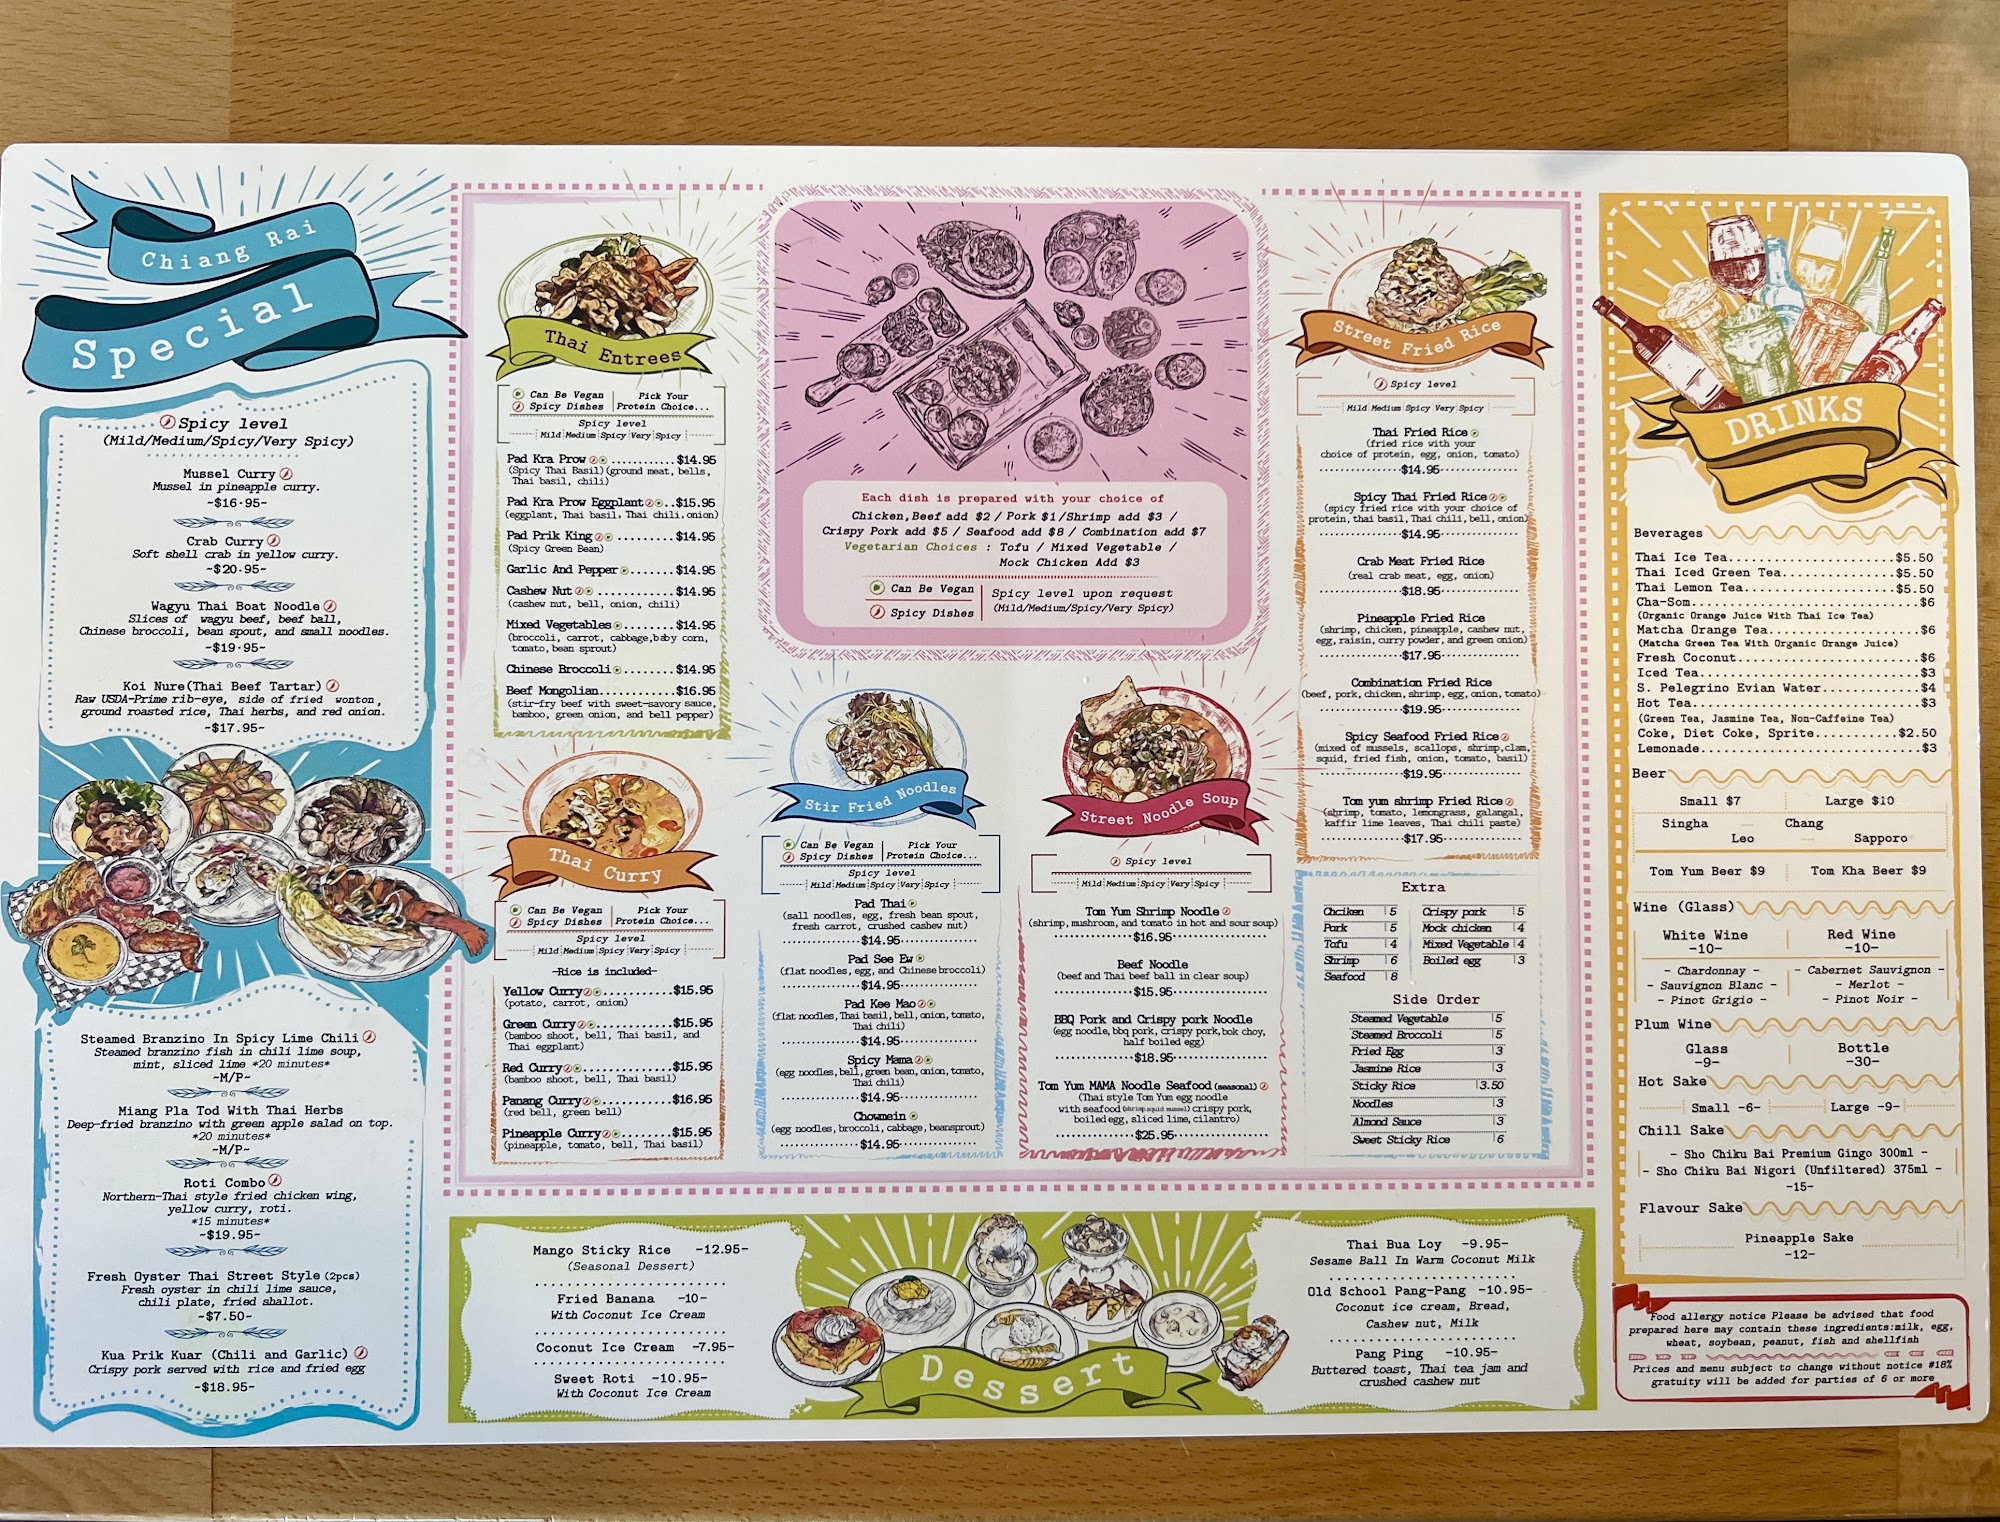 Chiang Rai
Special
Spicy level
(Mild/Medium/Spicy/Very Spicy)
Mussel Curry
Mussel in pineapple curry.
~$16.95~
Crab Curry
Soft shell crab in yellow curry.
~$20.95~
Wagyu Thai Boat Noodle
Slices of wagyu beef, beef ball,
Chinese broccoli, bean spout, and small noodles.
~$19.95~
Koi Nure(Thai Beef Tartar)
Raw USDA-Prime rib-eye, side of fried wonton,
ground roasted rice, Thai herbs, and red onion.
~$17.95~
Steamed Branzino In Spicy Lime Chili
Steamed branzino fish in chili lime soup,
mint, sliced lime *20 minutes*
~M/P~
Miang Pla Tod With Thai Herbs
Deep-fried branzino with green apple salad on top.
*20 minutes*
~M/P~
Roti Combo
Northern-Thai style fried chicken wing,
yellow curry, roti.
*15 minutes*
~$19.95~
Fresh Oyster Thai Street Style (2pcs)
Fresh oyster in chili lime sauce,
chili plate, fried shallot.
~$7.50~
Kua Prik Kuar (Chili and Garlic)
Crispy pork served with rice and fried egg
~$18.95~
Thai Entrees
Can Be Vegan Pick Your
Spicy Dishes Protein Choice...
Spicy level
Mild Medium Spicy Very Spicy
Pad Kra Prow ...........$14.95
(Spicy Thai Basil)(ground meat, bells,
Thai basil, chili)
Pad Kra Prow Eggplant..$15.95
(eggplant, Thai basil, Thai chili, onion)
Pad Prik King ..........$14.95
(Spicy Green Bean)
Garlic And Pepper.......$14.95
Cashew Nut ............$14.95
(cashew nut, bell, onion, chili)
Mixed Vegetables.......$14.95
(broccoli, carrot, cabbage, baby corn,
tomato, bean sprout)
Chinese Broccoli.......$14.95
Beef Mongolian............$16.95
(stir-fry beef with sweet-savory sauce,
bamboo, green onion, and bell pepper)
Thai Curry
Can Be Vegan Pick Your
Spicy Dishes Protein Choice...
Spicy level
Mild Medium Spicy Very Spicy
—Rice is included—
Yellow Curry..........$15.95
(potato, carrot, onion)
Green Curry...........$15.95
(bamboo shoot, bell, Thai basil, and
Thai eggplant)
Red Curry.............$15.95
(bamboo shoot, bell, Thai basil)
Panang Curry..........$16.95
(red bell, green bell)
Pineapple Curry.......$15.95
(pineapple, tomato, bell, Thai basil)
Each dish is prepared with your choice of
Chicken,Beef add $2 / Pork $1/Shrimp add $3 /
Crispy Pork add $5 / Seafood add $8 / Combination add $7
Vegetarian Choices : Tofu / Mixed Vegetable /
Mock Chicken Add $3
Can Be Vegan
Spicy Dishes
Spicy level upon request
(Mild/Medium/Spicy/Very Spicy)
Stir Fried Noodles
Can Be Vegan Pick Your
Spicy Dishes Protein Choice...
Spicy level
Mild Medium Spicy Very Spicy
Pad Thai
(sall noodles, egg, fresh bean spout,
fresh carrot, crushed cashew nut)
$14.95
Pad See Ew
(flat noodles, egg, and Chinese broccoli)
$14.95
Pad Kee Mao
(flat noodles, Thai basil, bell, onion, tomato,
Thai chili)
$14.95
Spicy Mama
(egg noodles, bell, green bean, onion, tomato,
Thai chili)
$14.95
Chowmein
(egg noodles, broccoli, cabbage, beansprout)
$14.95
Street Noodle Soup
Spicy level
Mild Medium Spicy Very Spicy
Tom Yum Shrimp Noodle
(shrimp, mushroom, and tomato in hot and sour soup)
$16.95
Beef Noodle
(beef and Thai beef ball in clear soup)
$15.95
BBQ Pork and Crispy pork Noodle
(egg noodle, bbq pork, crispy pork, bok choy,
half boiled egg)
$18.95
Tom Yum MAMA Noodle Seafood (seasonal)
(Thai style Tom Yum egg noodle
with seafood (shrimp squid mussel) crispy pork,
boiled egg, sliced lime, cilantro)
$25.95
Street Fried Rice
Spicy level
Mild Medium Spicy Very Spicy
Thai Fried Rice
(fried rice with your
choice of protein, egg, onion, tomato)
$14.95
Spicy Thai Fried Rice
(spicy fried rice with your choice of
protein, thai basil, Thai chili, bell, onion)
$14.95
Crab Meat Fried Rice
(real crab meat, egg, onion)
$18.95
Pineapple Fried Rice
(shrimp, chicken, pineapple, cashew nut,
egg, raisin, curry powder, and green onion)
$17.95
Combination Fried Rice
(beef, pork, chicken, shrimp, egg, onion, tomato)
$19.95
Spicy Seafood Fried Rice
(mixed of mussels, scallops, shrimp, clam,
squid, fried fish, onion, tomato, basil)
$19.95
Tom yum shrimp Fried Rice
(shrimp, tomato, lemongrass, galangal,
kaffir lime leaves, Thai chili paste)
$17.95
Extra
Chciken 5 Crispy pork 5
Pork 5 Mock chicken 4
Tofu 4 Mixed Vegetable 4
Shrimp 6 Boiled egg 3
Seafood 8
Side Order
Steamed Vegetable 5
Steamed Broccoli 5
Fried Egg 3
Jasmine Rice 3
Sticky Rice 3.50
Noodles 3
Almond Sauce 3
Sweet Sticky Rice 6
DRINKS
Beverages
Thai Ice Tea....................$5.50
Thai Iced Green Tea.............$5.50
Thai Lemon Tea..................$5.50
Cha-Som............................$6
(Organic Orange Juice With Thai Ice Tea)
Matcha Orange Tea..................$6
(Matcha Green Tea With Organic Orange Juice)
Fresh Coconut......................$6
Iced Tea...........................$3
S. Pelegrino Evian Water...........$4
Hot Tea............................$3
(Green Tea, Jasmine Tea, Non-Caffeine Tea)
Coke, Diet Coke, Sprite.........$2.50
Lemonade...........................$3
Beer
Small $7 Large $10
Singha Chang
Leo Sapporo
Tom Yum Beer $9 Tom Kha Beer $9
Wine (Glass)
White Wine Red Wine
-10- -10-
- Chardonnay - - Cabernet Sauvignon -
- Sauvignon Blanc - - Merlot -
- Pinot Grigio - - Pinot Noir -
Plum Wine
Glass Bottle
-9- -30-
Hot Sake
Small -6- Large -9-
Chill Sake
- Sho Chiku Bai Premium Gingo 300ml -
- Sho Chiku Bai Nigori (Unfiltered) 375ml -
-15-
Flavour Sake
Pineapple Sake
-12-
Food allergy notice Please be advised that food
prepared here may contain these ingredients:milk, egg,
wheat, soybean, peanut, fish and shellfish
Prices and menu subject to change without notice #18%
gratuity will be added for parties of 6 or more
Mango Sticky Rice -12.95-
(Seasonal Dessert)
Fried Banana -10-
With Coconut Ice Cream
Coconut Ice Cream -7.95-
Sweet Roti -10.95-
With Coconut Ice Cream
Dessert
Thai Bua Loy -9.95-
Sesame Ball In Warm Coconut Milk
Old School Pang-Pang -10.95-
Coconut ice cream, Bread,
Cashew nut, Milk
Pang Ping -10.95-
Buttered toast, Thai tea jam and
crushed cashew nut